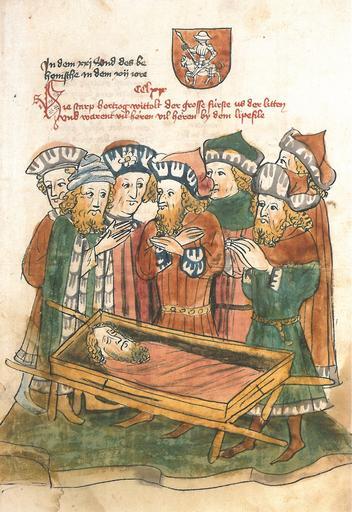 In dem xxj vnd des be
hemsche in dem xvij iore
Hie starp hertzog wittolt der grosse fürste vs der litten
vnd warent vil heren vil heren by dem lipefile